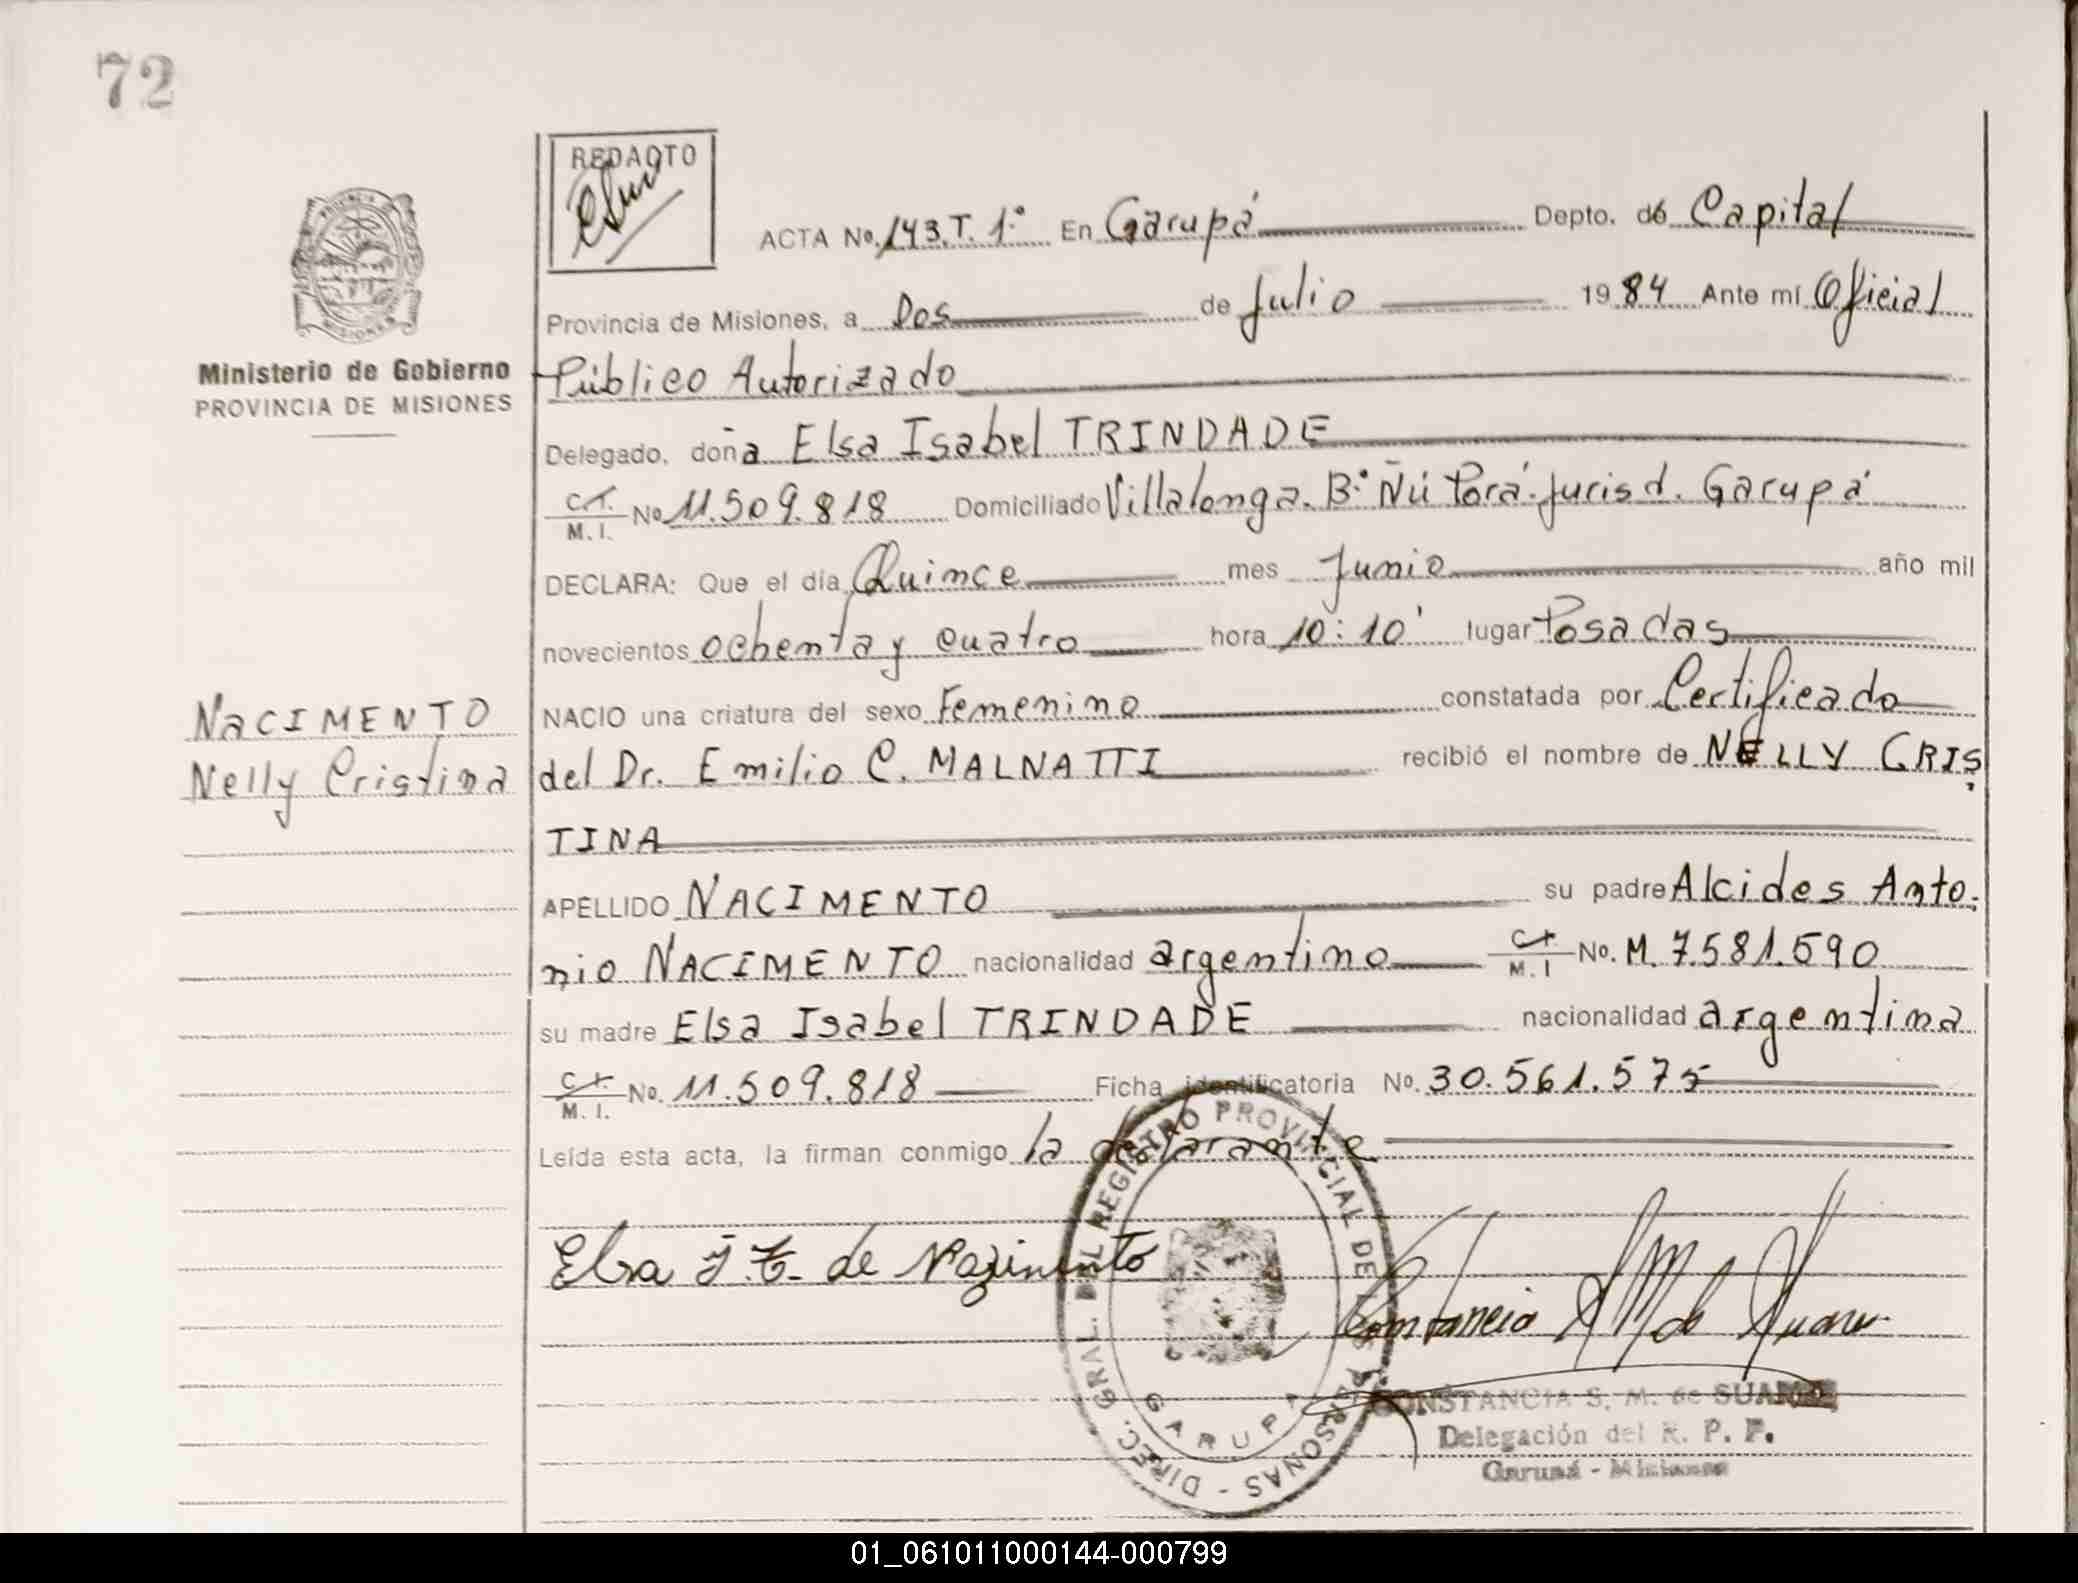 72
REDACTO
ACTA No. 143.T. 1º En Garupá Depto. de Capital
Provincia de Misiones, a Dos de Julio 1984 Ante mí Oficial
Ministerio de Gobierno
PROVINCIA DE MISIONES
Público Autorizado
Delegado, doña Elsa Isabel TRINDADE
C.I. M. I. No 11.509.818 Domiciliado Villalonga. Bº Ñú Porá. jurisd. Garupá
DECLARA: Que el día Quince mes Junio año mil
novecientos ochenta y cuatro hora 10:10' lugar Posadas
NACIMENTO
Nelly Cristina
NACIO una criatura del sexo Femenino constatada por Certificado
del Dr. Emilio C. MALNATTI recibió el nombre de NELLY CRIS
TINA
APELLIDO NACIMENTO su padre Alcides Anto.
nio NACIMENTO nacionalidad argentino C.I. M. I No. M. 7.581.590
su madre Elsa Isabel TRINDADE nacionalidad argentina
C.I. M. I. No. 11.509.818 Ficha identificatoria No. 30.561.575
Leída esta acta, la firman conmigo la declarante
Elsa I. T. de Nazimento
DIREC. GRAL. DEL REGISTRO PROVINCIAL DE LAS PERSONAS - GARUPA
Constancia S M de Suarez
CONSTANCIA S. M. de SUAREZ
Delegación del R. P. P.
Garupá - Misiones
01_061011000144-000799